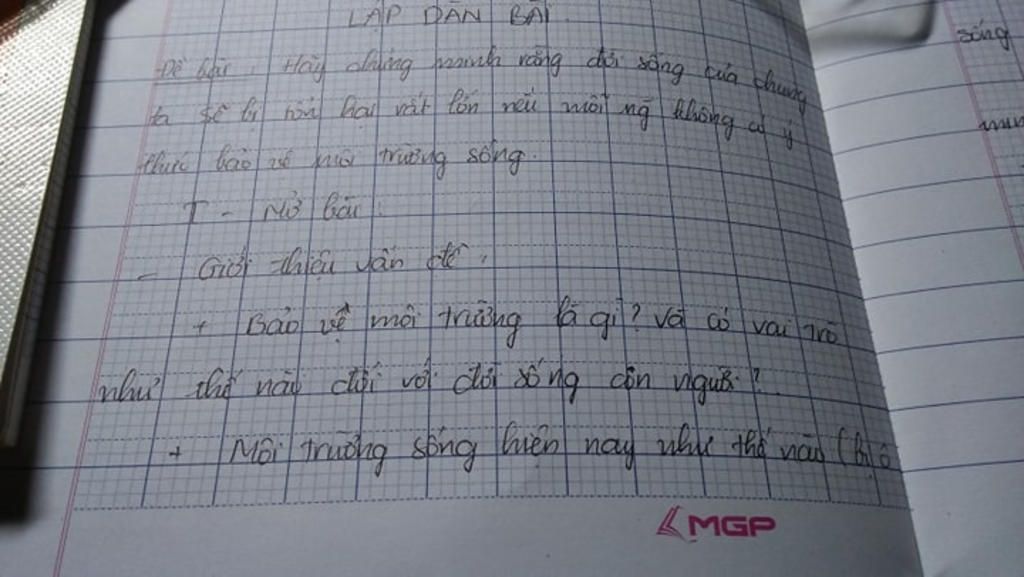 LẬP DÀN BÀI
Đề bài : Hãy chứng minh rằng đời sống của chúng
ta sẽ bị tổn hại rất lớn nếu mỗi ng không có ý
thức bảo vệ môi trường sống.
I - Mở bài :
- Giới thiệu vấn đề.
+ Bảo vệ môi trường là gì? và có vai trò
như thế nào đối với đời sống con người?
+ Môi trường sống hiện nay như thế nào (bị ô
MGP
sống